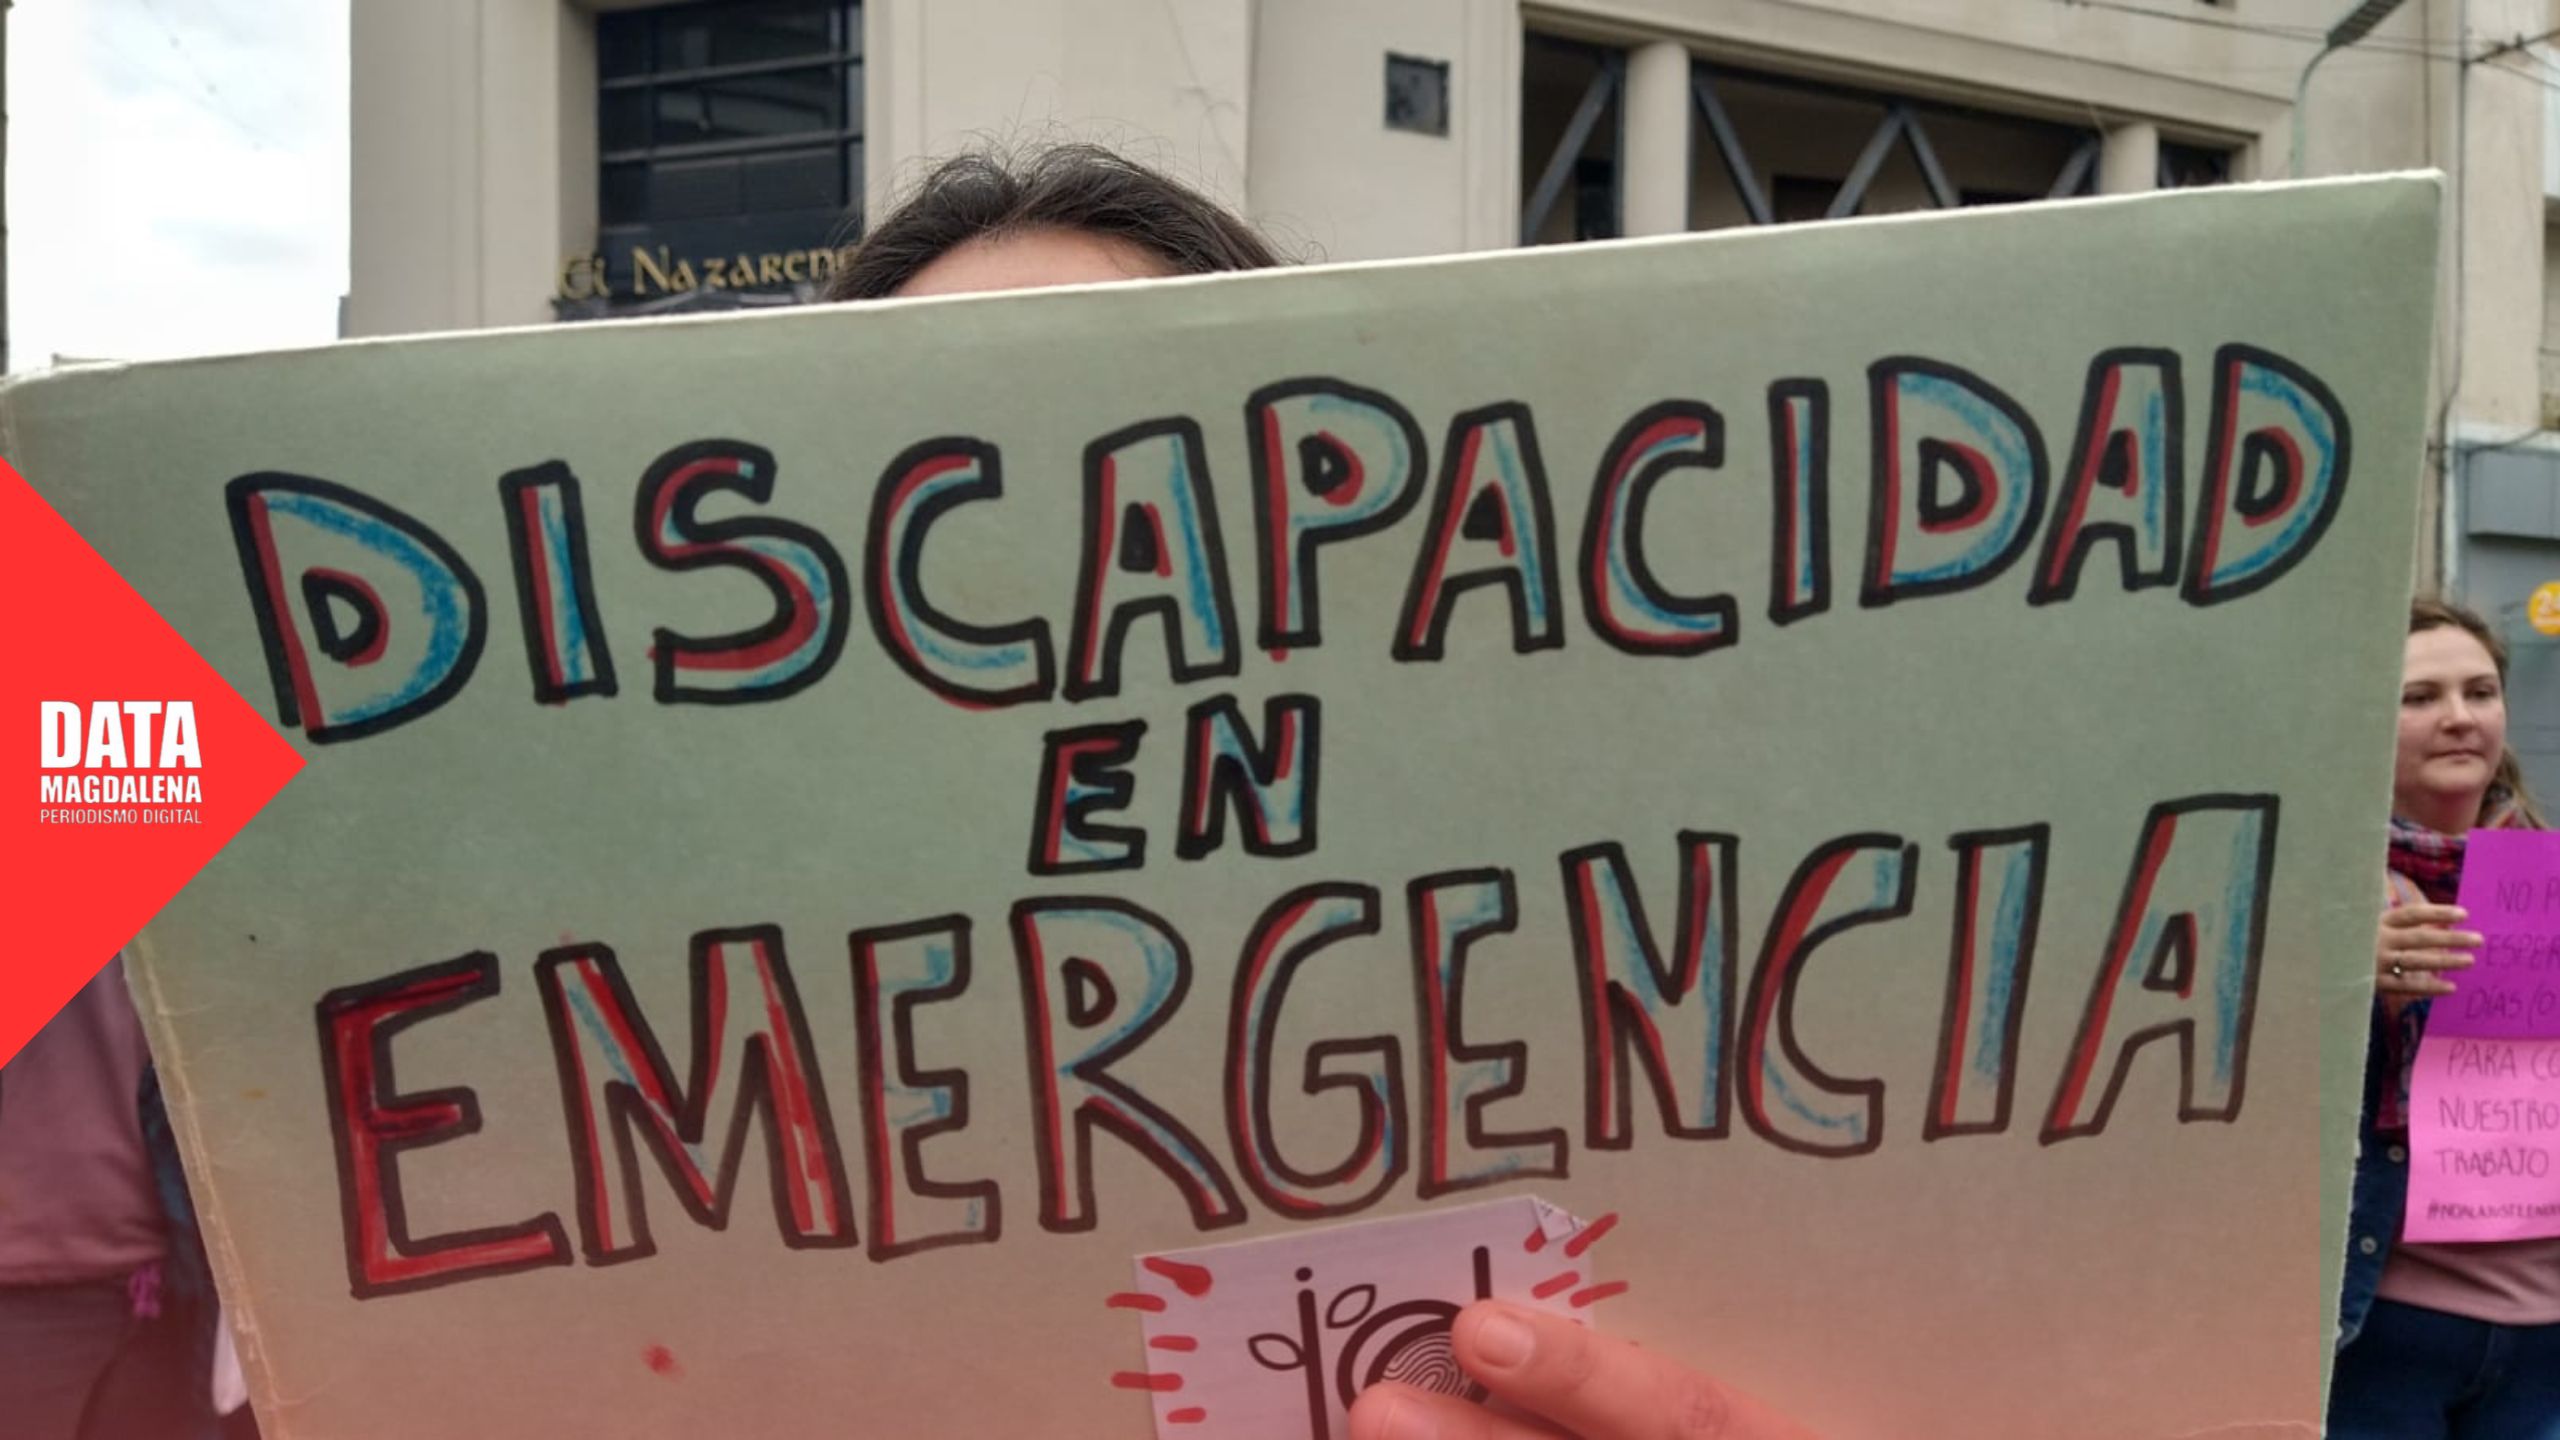 El Nazareno
DISCAPACIDAD
EN
EMERGENCIA
DATA
MAGDALENA
PERIODISMO DIGITAL
NO
DÍAS (O
PARA
NUESTRO
TRABAJO